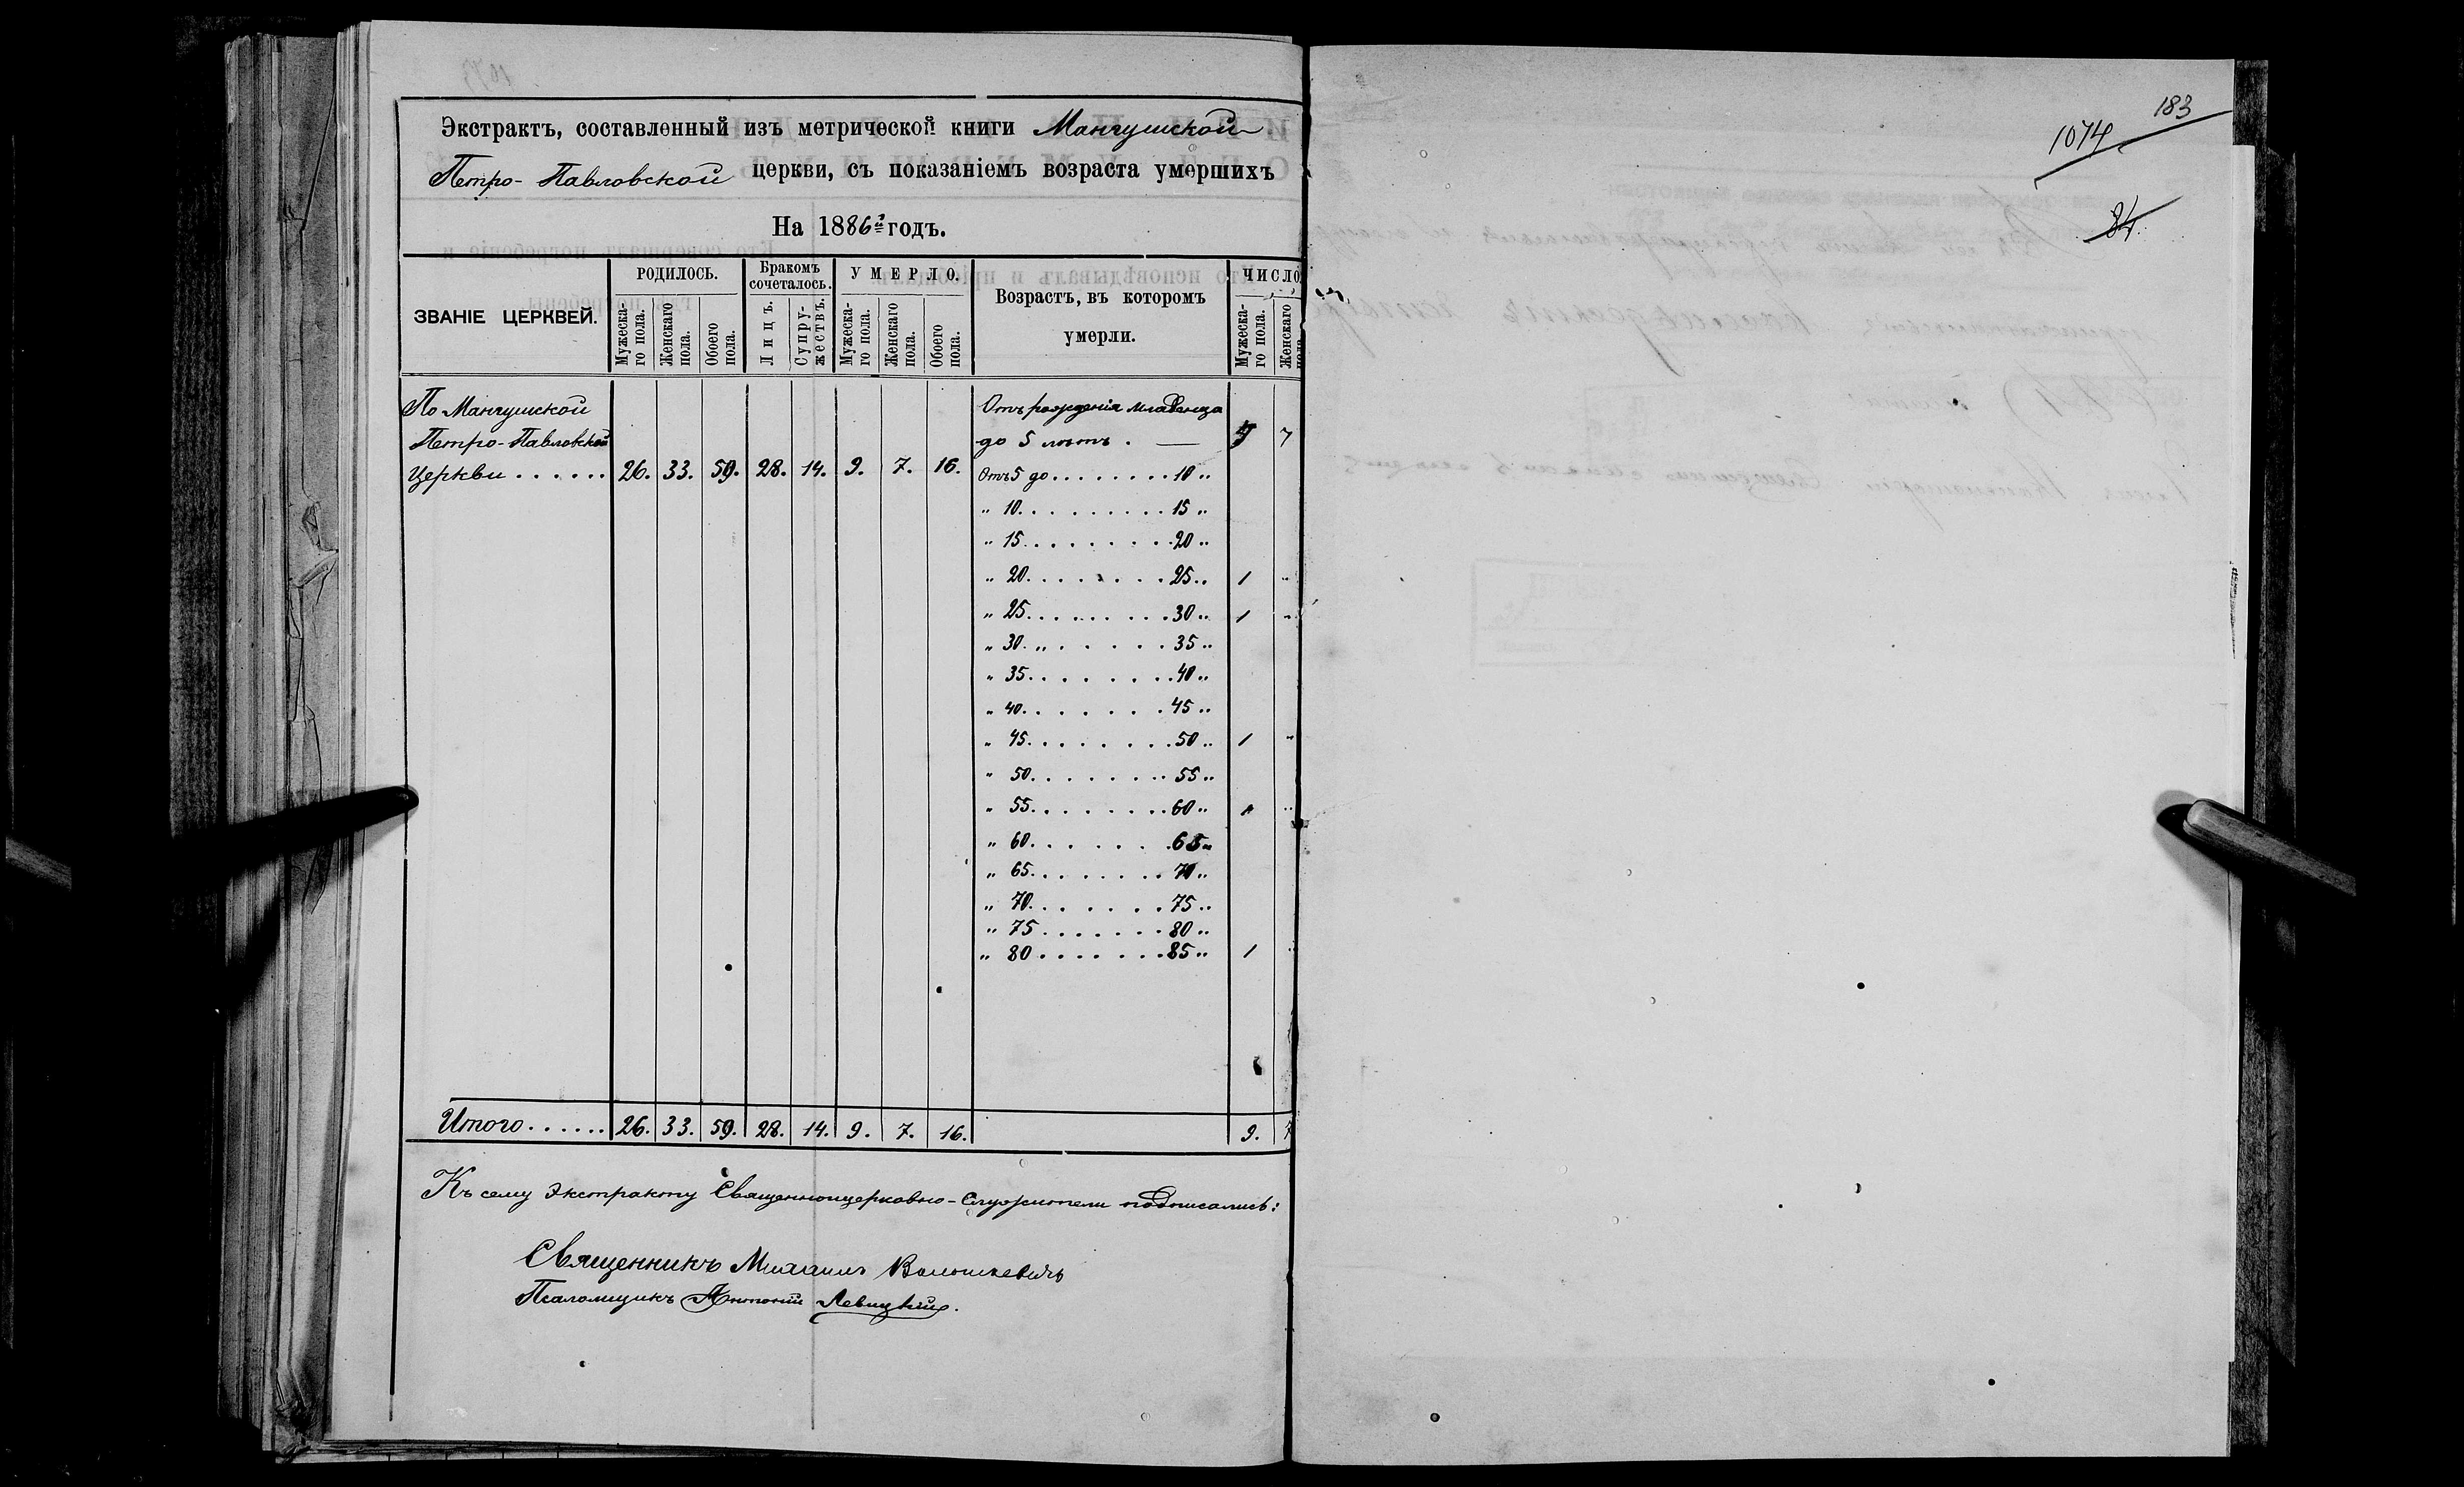 Экстрактъ, составленный изъ метрической книги Мангушской
Петро-Павловской церкви, съ показаніемъ возраста умершихъ
На 1886й годъ.
ЗВАНІЕ ЦЕРКВЕЙ.
РОДИЛОСЬ.
Мужеска-
го пола.
Женскаго
пола.
Обоего
пола.
Бракомъ
сочеталось.
Лицъ.
Супру-
жествъ.
УМЕРЛО.
Мужеска-
го пола.
Женскаго
пола.
Обоего
пола.
Возрастъ, въ которомъ
умерли.
ЧИСЛО
Мужеска-
го пола.
Женскаго
пола
По Мангушской
Петро-Павловской
Церкви . . . . . . 26. 33. 59. 28. 14. 9. 7. 16.
Отъ рожденія младенца
до 5 лѣтъ . — 4 7
Отъ 5 до . . . . . . . . 10 "
" 10. . . . . . . . . 15 "
" 15. . . . . . . . . 20 "
" 20. . . . . . . . 25 " 1 "
" 25. . . . . . . . . 30 " 1 "
" 30. " . . . . . . 35 "
" 35. . . . . . . . . 40 "
" 40. . . . . . . . 45 "
" 45. . . . . . . . . 50 " 1 "
" 50. . . . . . . . 55 "
" 55. . . . . . . . 60 " 1 "
" 60. . . . . . . . 65 "
" 65. . . . . . . . 70 "
" 70. . . . . . . . 75 "
" 75 . . . . . . . 80 "
" 80 . . . . . . . 85 " 1 "
Итого . . . . . . 26. 33. 59. 28. 14. 9. 7. 16. 9. 7
Къ сему Экстракту Священноцерковно-Служители подписались:
Священникъ Михаилъ Волошкевичъ
Псаломщикъ Антоній Левицкій.
183
1074
84.